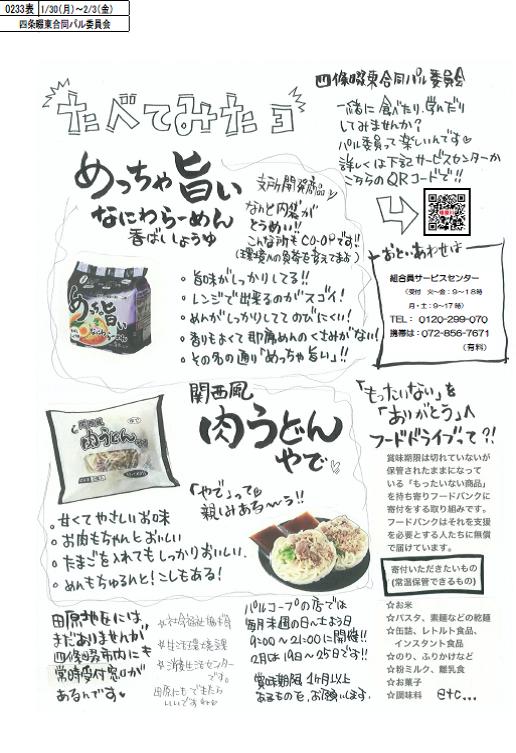 0233表 1/30(月)~2/3(金)
四条畷東合同パル委員会
たべてみたョ
四條畷東合同パル委員会
一緒に食べたり、学んだり
してみませんか?
パル委員って楽しいんです
詳しくは下記サービスセンターか
こちらのQRコードで!!
めっちゃ旨い
なにわらーめん
香ばいしょうゆ
支所開発商品
なんと内袋が
とうめい!!
こんな所もCO・OPです!!
(環境への負荷を考えてます)
・旨味がしっかりしてる!!
・レンジで出来るのがスゴイ!
・めんがしっかりしててのびにくい!
・香りもよくて即席めんのくさみがない!
・その名の通り「めっちゃ旨い」!!
おといあわせは
組合員サービスセンター
(受付 火~金:9~18時
月・土:9~17時)
TEL: 0120-299-070
携帯は:072-856-7671
(有料)
関西風
肉うどん
やで
「やで」って
親しみある~う!!
・甘くてやさしいお味
・お肉もちゃんとおいしい
・たまごを入れてもしっかりおいしい.
・めんもちゅるんと!こしもある!
「もったいない」を
「ありがとう」へ
フードドライブって?!
賞味期限は切れていないが
保管されたままになって
いる「もったいない商品」
を持ち寄りフードバンクに
寄付をする取り組みです。
フードバンクはそれを支援
を必要とする人たちに無償
で届けています。
寄付いただきたいもの
(常温保管できるもの)
☆お米
☆パスタ、素麺などの乾麺
☆缶詰、レトルト食品、
インスタント食品
☆のり、ふりかけなど
☆粉ミルク、離乳食
☆お菓子
☆調味料 etc...
田原地区には
まだありませんが
四條畷市内にも
常時受付窓口が
あるんです
☆社会福祉協議会
☆生活環境課
☆消費生活センター
です。
田原にもできたら
いいです
パルコープの店では
毎月末週の日~土よう日
9:00~21:00に開催!!
2月は19日~25日です!!
賞味期限 1ケ月以上
あるものを、お願いします.